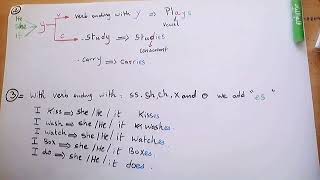 ②
He
She
it
y
v
verb ending with y ⇒ Plays
vowel
c
. study ⟹ Studies
consonant
. carry ⟹ carries.
③= with verb ending with: ss, sh, ch, x and o we add "es"
I Kiss ⟹ she / He / it Kisses
I wash ⟹ she / He / it washes.
I watch ⟹ she / He / it Watches
I Box ⟹ she / He / it Boxes.
I do ⟹ she / He / it does.